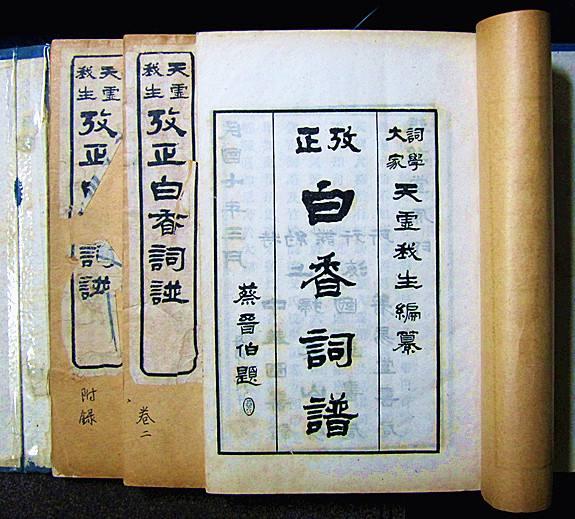 詞學大家
天虛我生編纂
攷正
白香詞譜
蔡晉伯題
民國七年三月
天虛我生
攷正白香詞譜
卷二
天虛我生
攷正
詞譜
附錄